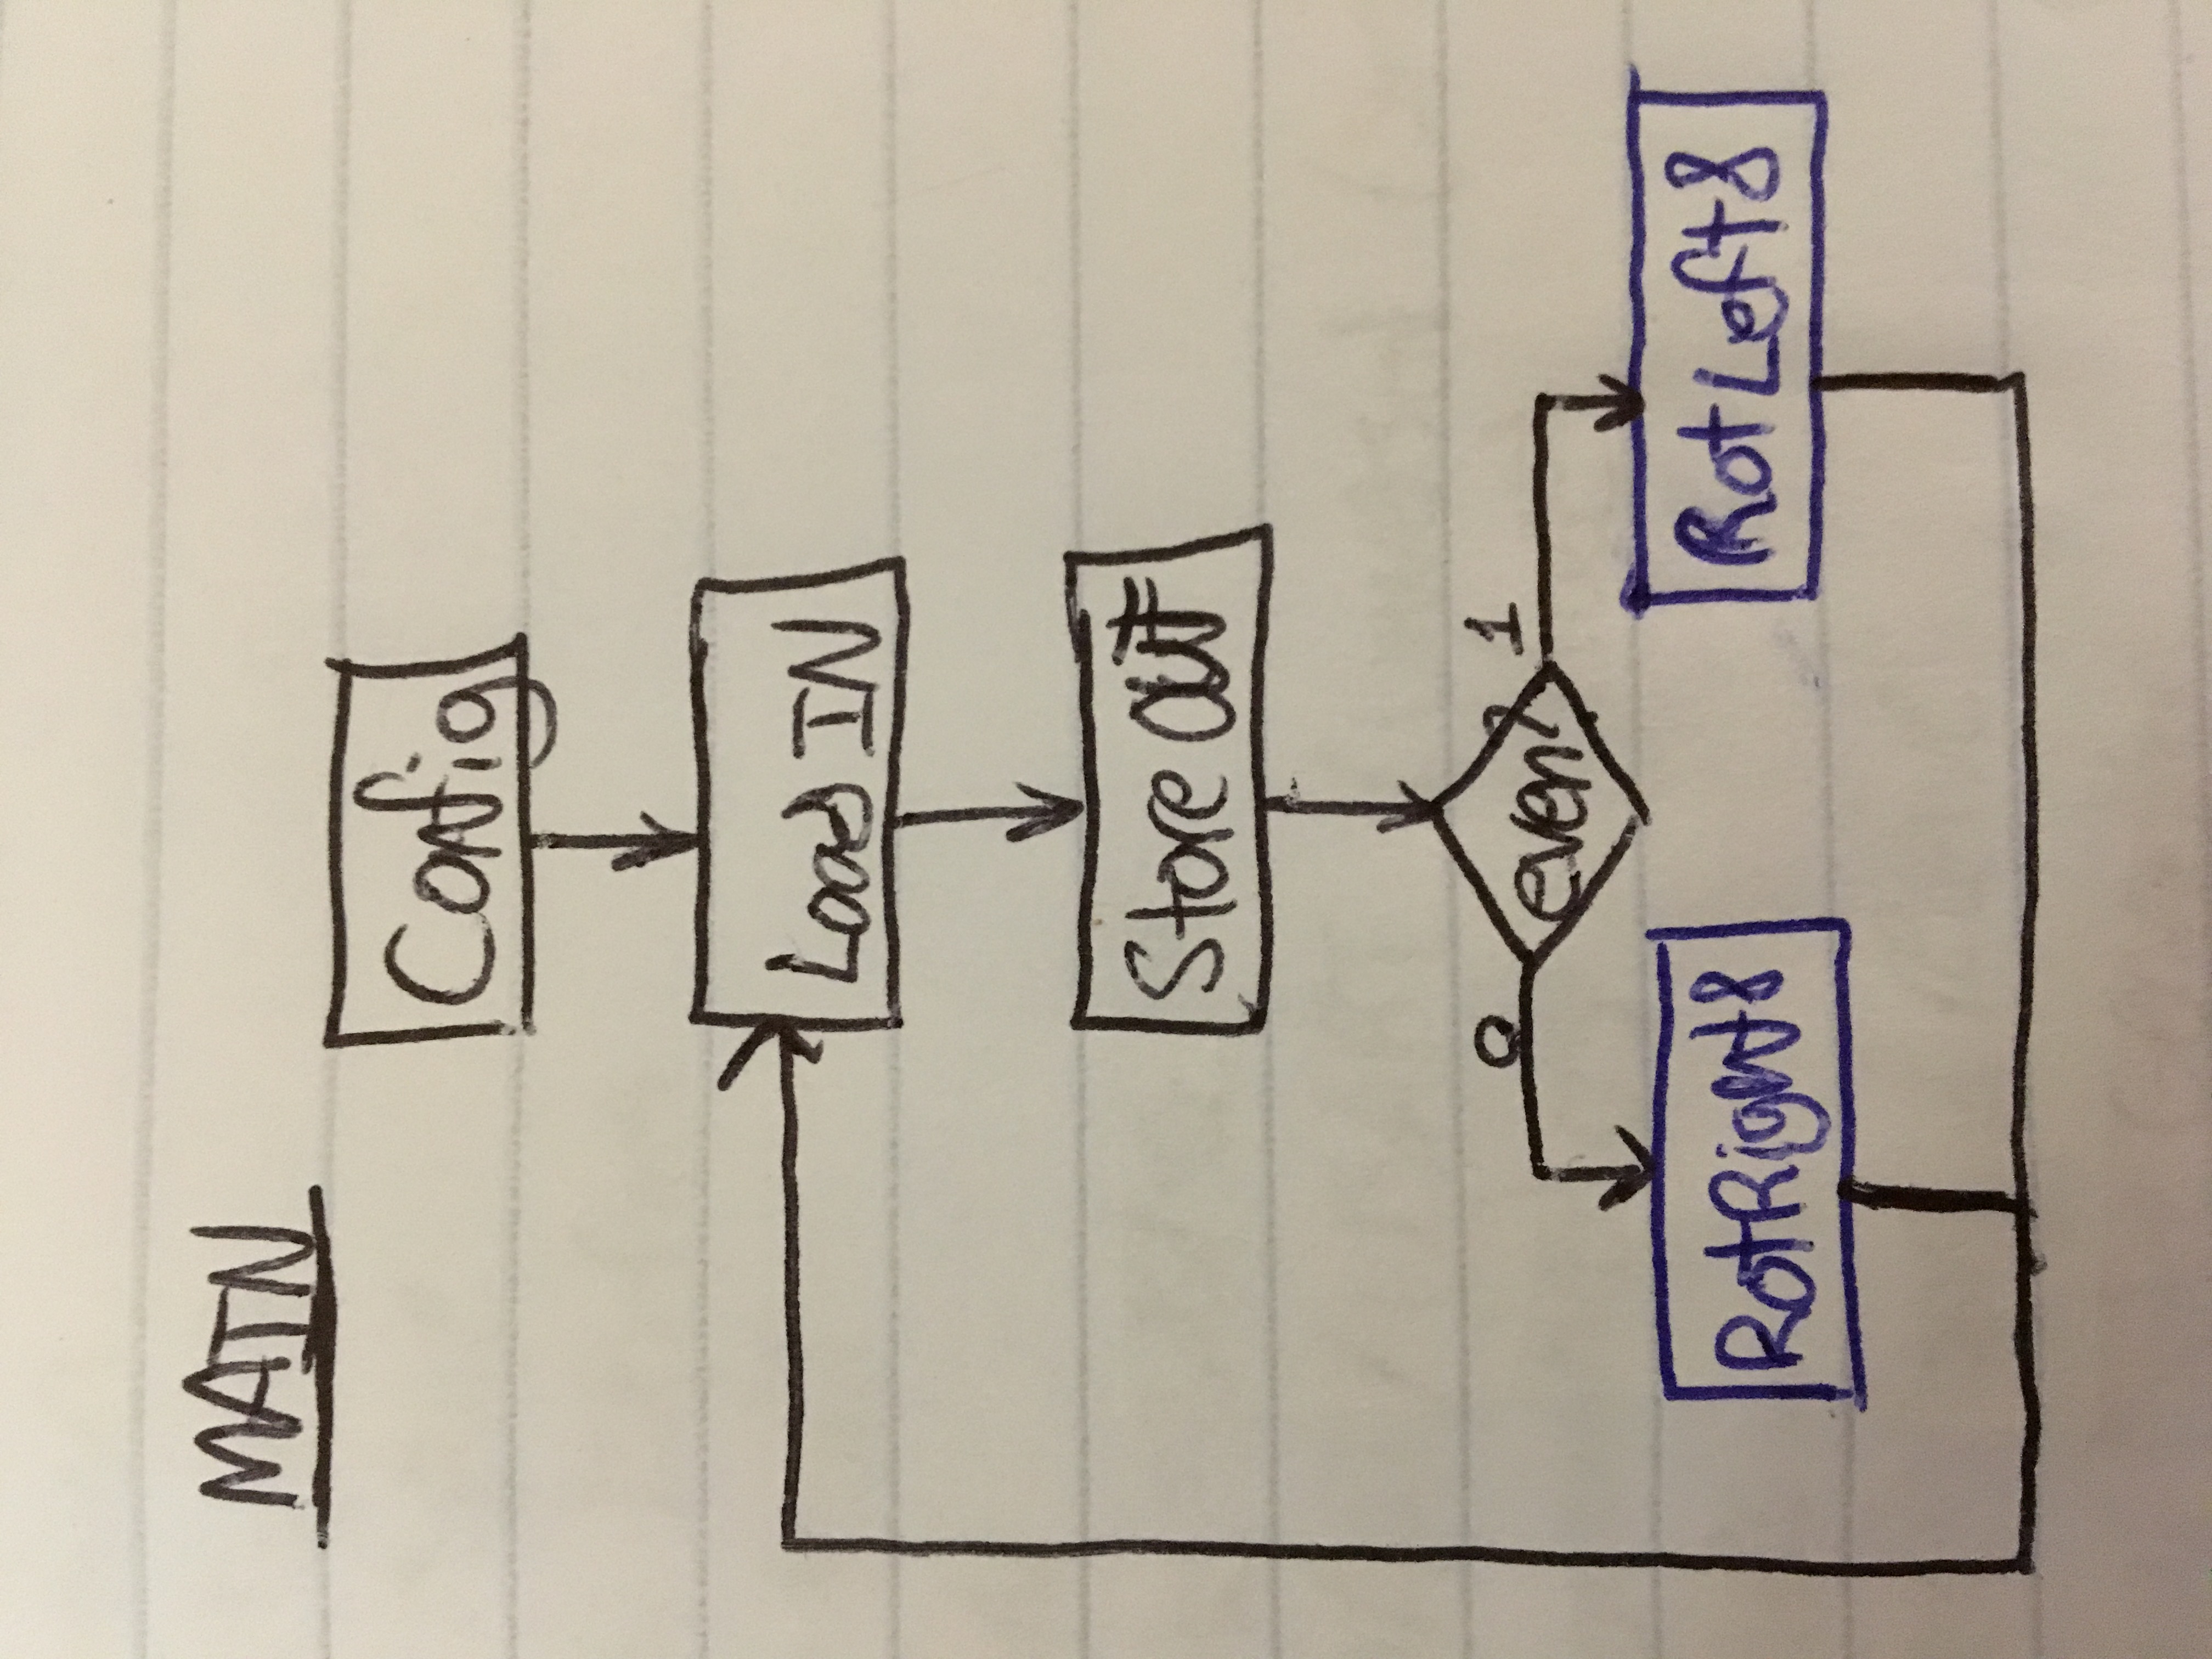 MAIN
Config
Load IN
Store OUT
0
even?
1
RotRight8
RotLeft8